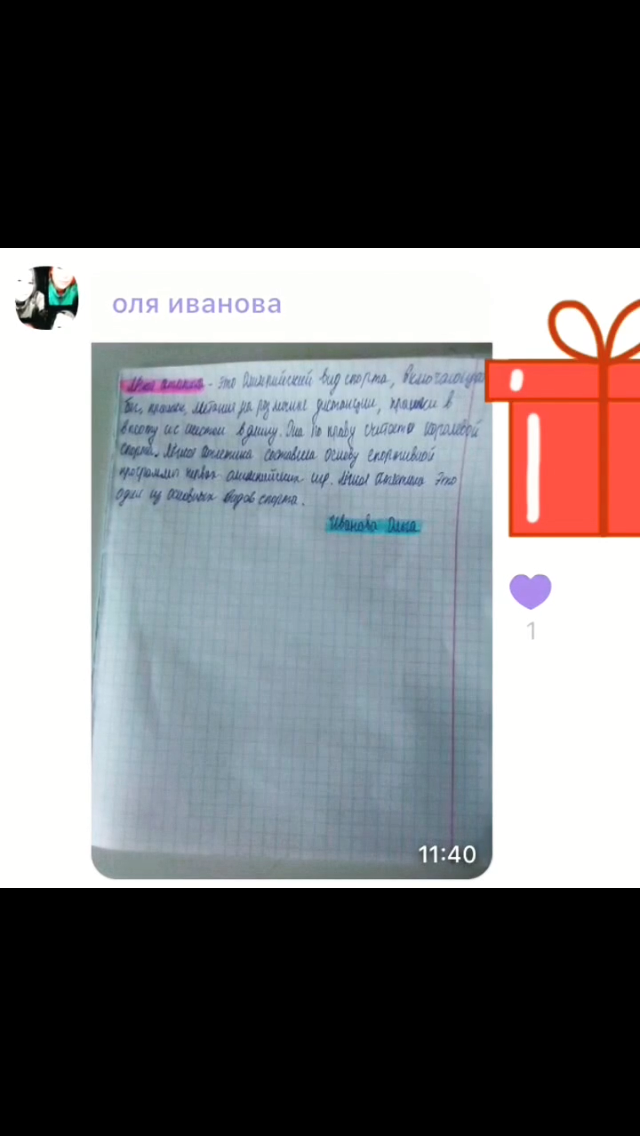 оля иванова
Лёгкая атлетика - это Олимпийский вид спорта, включающий
бег, прыжки, метания на различные дистанции, прыжки в
высоту и с шестом в длину. Она по праву считается королевой
спорта. Лёгкая атлетика составила основу спортивной
программы первых олимпийских игр. Лёгкая атлетика это
один из основных видов спорта.
Иванова Ольга
1
11:40